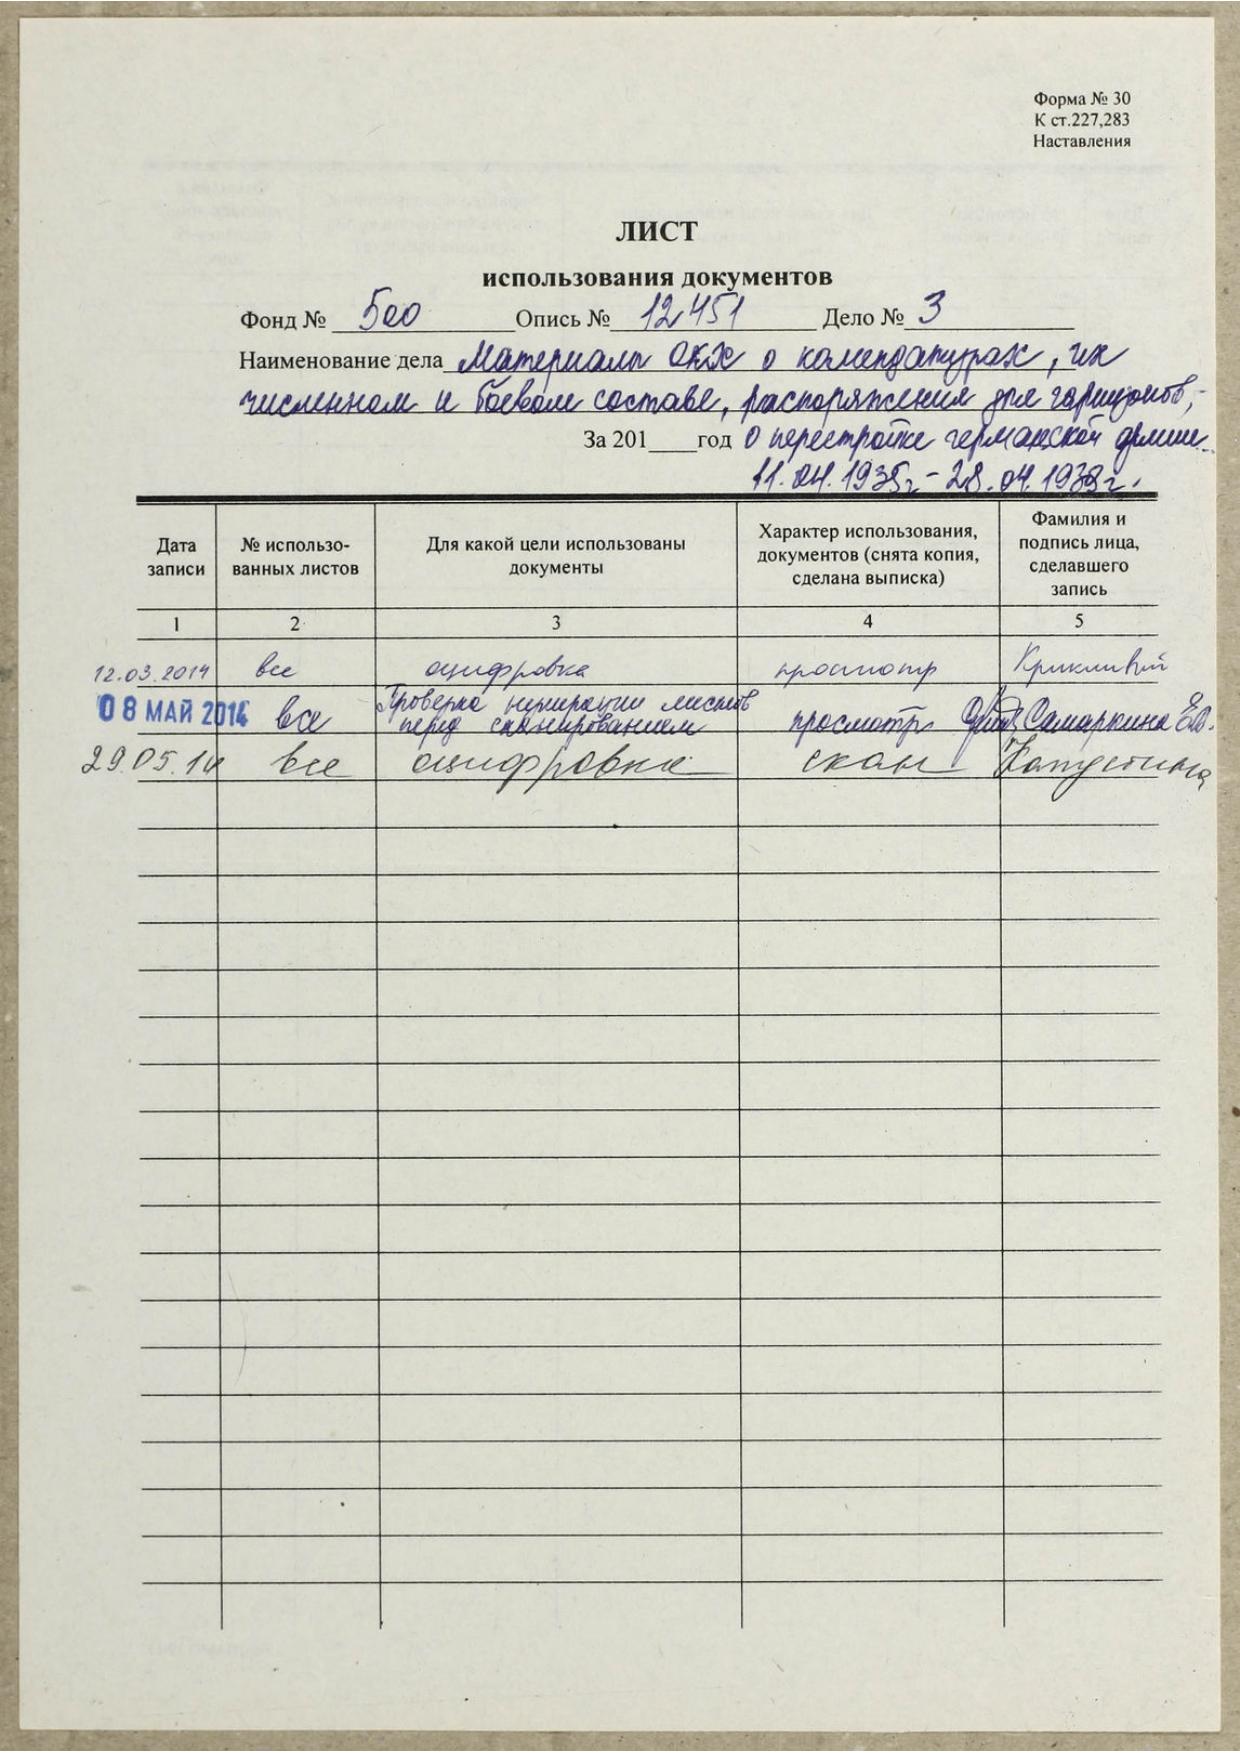 Форма № 30
К ст.227,283
Наставления
ЛИСТ
использования документов
Фонд № 500 Опись № 12451 Дело № 3
Наименование дела Материалы ОКХ о комендатурах, их
численном и боевом составе, распоряжения для гарнизонов,
За 201____год о перестройке германской армии
11.04.1935г - 28.04.1938г.
Дата записи № использо-ванных листов Для какой цели использованы документы Характер использования, документов (снята копия, сделана выписка) Фамилия и подпись лица, сделавшего запись
1 2 3 4 5
12.03.2014 все оцифровка просмотр Крикливый
08 МАЙ 2014 все Проверка нумерации листов перед сканированием просмотр Самаркина Е.В.
29.05.14 все оцифровка скан Капустина